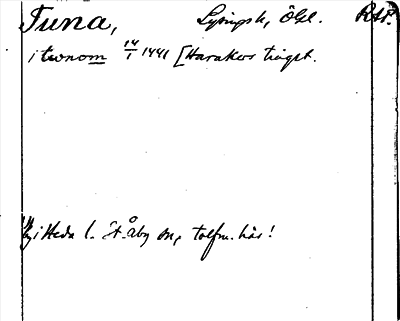 Tuna, Lysingsh, Ögl. RAP.
i twnom 14/1 1441 [Harakers tingst.
i Heda l. St. Åby sn, tolfm. här!